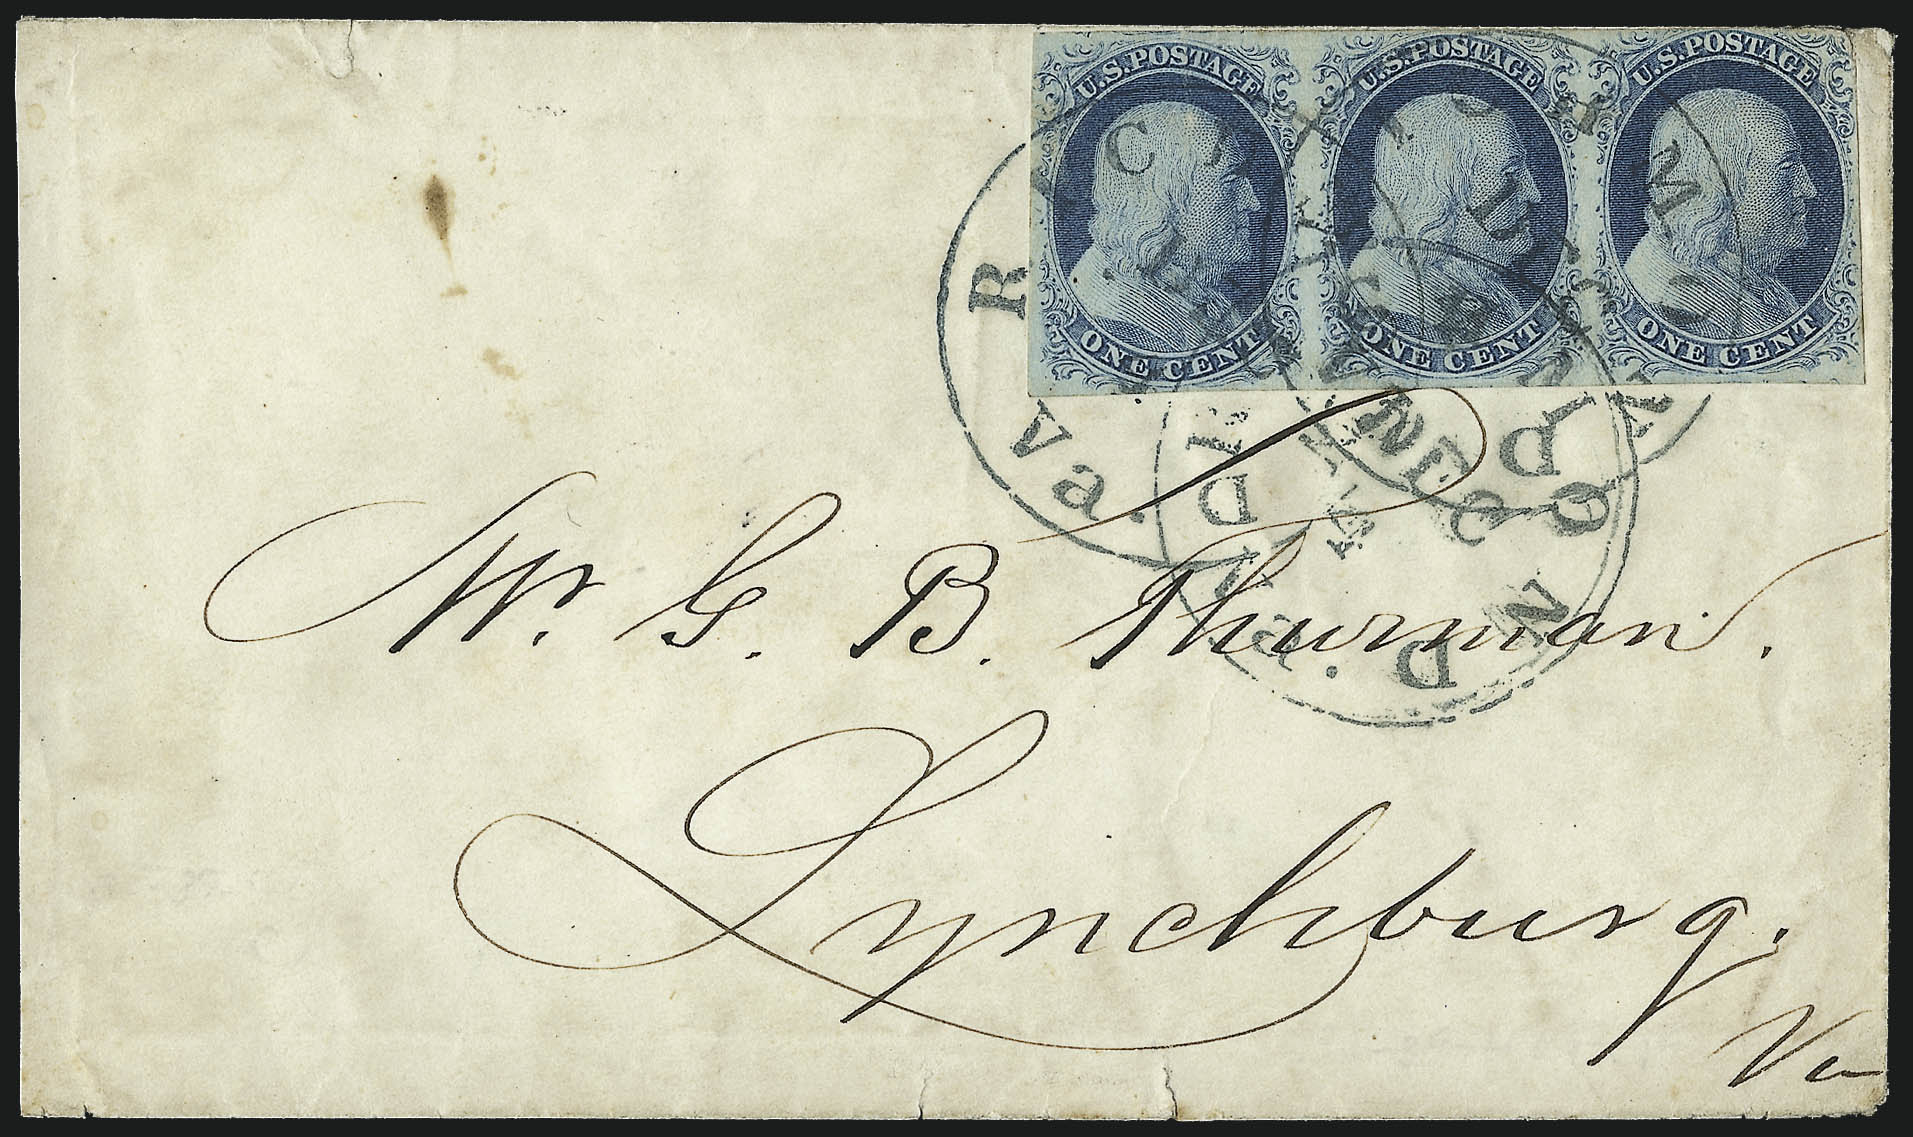 U.S. POSTAGE U.S. POSTAGE U.S. POSTAGE
ONE CENT ONE CENT ONE CENT
RICHMOND
Va.
Mr. G. B. Thurman.
Lynchburg.
Va